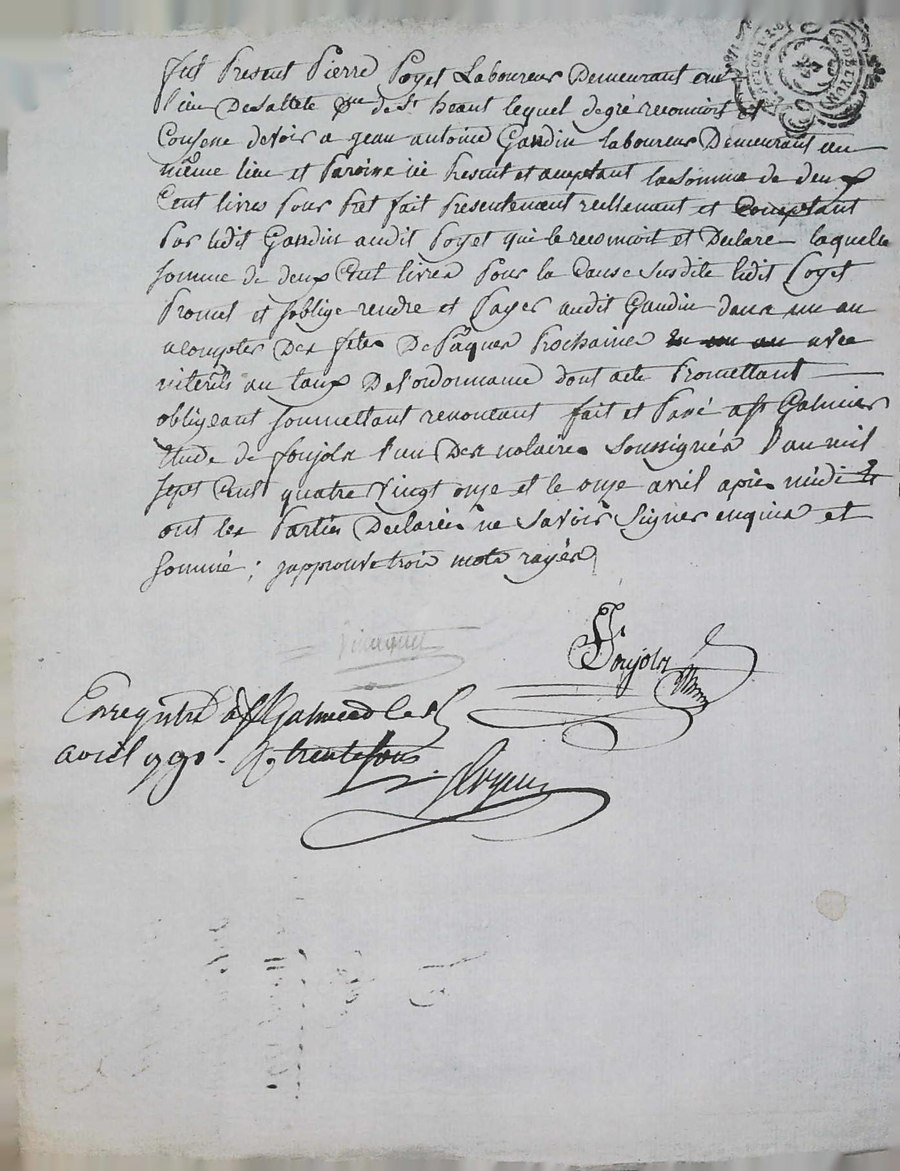 fut Present Pierre Poyet Laboureur Demeurant au
lieu De paroisse de St heant lequel degré reconnoit et
Confesse devoir a jean antoine Gandin laboureur Demeurant au
même lieu et Paroisse ici Present et acceptant la somme de deux
Cent livres pour Pret fait Presentement reellement et Comptant
Par ledit Gandin audit Poyet qui le reconnoit et Declare laquelle
somme de deux Cent livres Pour la Cause susdite ledit Poyet
Promet et soblige rendre et Payer audit Gandin dans un an
a Compter Des fêtes De Paques Prochaine en un an avec
interêts au taux De l'ordonnance dont acte Promettant
obligeant soumettant renoncant fait et Passé a St Galmier
Etude de Poujols l'un Des notaires soussignés l'an mil
sept Cent quatre vingt onze et le onze avril après midi
ont les Parties Declarées ne savoir signer enquises et
sommé ; japprouve trois mots rayés
Poujols
Enregistré a St Galmier le
avril 1791. R. trente sous